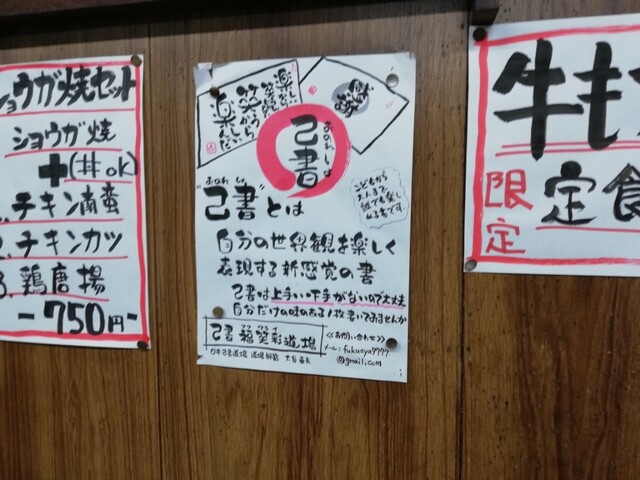 ショウガ焼セット
ショウガ焼
+(丼ok)
チキン南蛮
2.チキンカツ
3.鶏唐揚
-750円-
楽しいから
笑うから
楽しいんだ
感謝
己書
おのれしょ
おのれしょ
"己書"とは
自分の世界観を楽しく
表現する新感覚の書
こどもから
大人まで
誰でも楽し
める書です。
己書は上手い下手がないので大丈夫
自分だけの味のある1枚書いてみませんか
己書 福笑彩道場
日本己書道場 道場師範
<<お問い合わせ>>
メール:fukuzya7777
@gmail.com
牛も
限定
定食